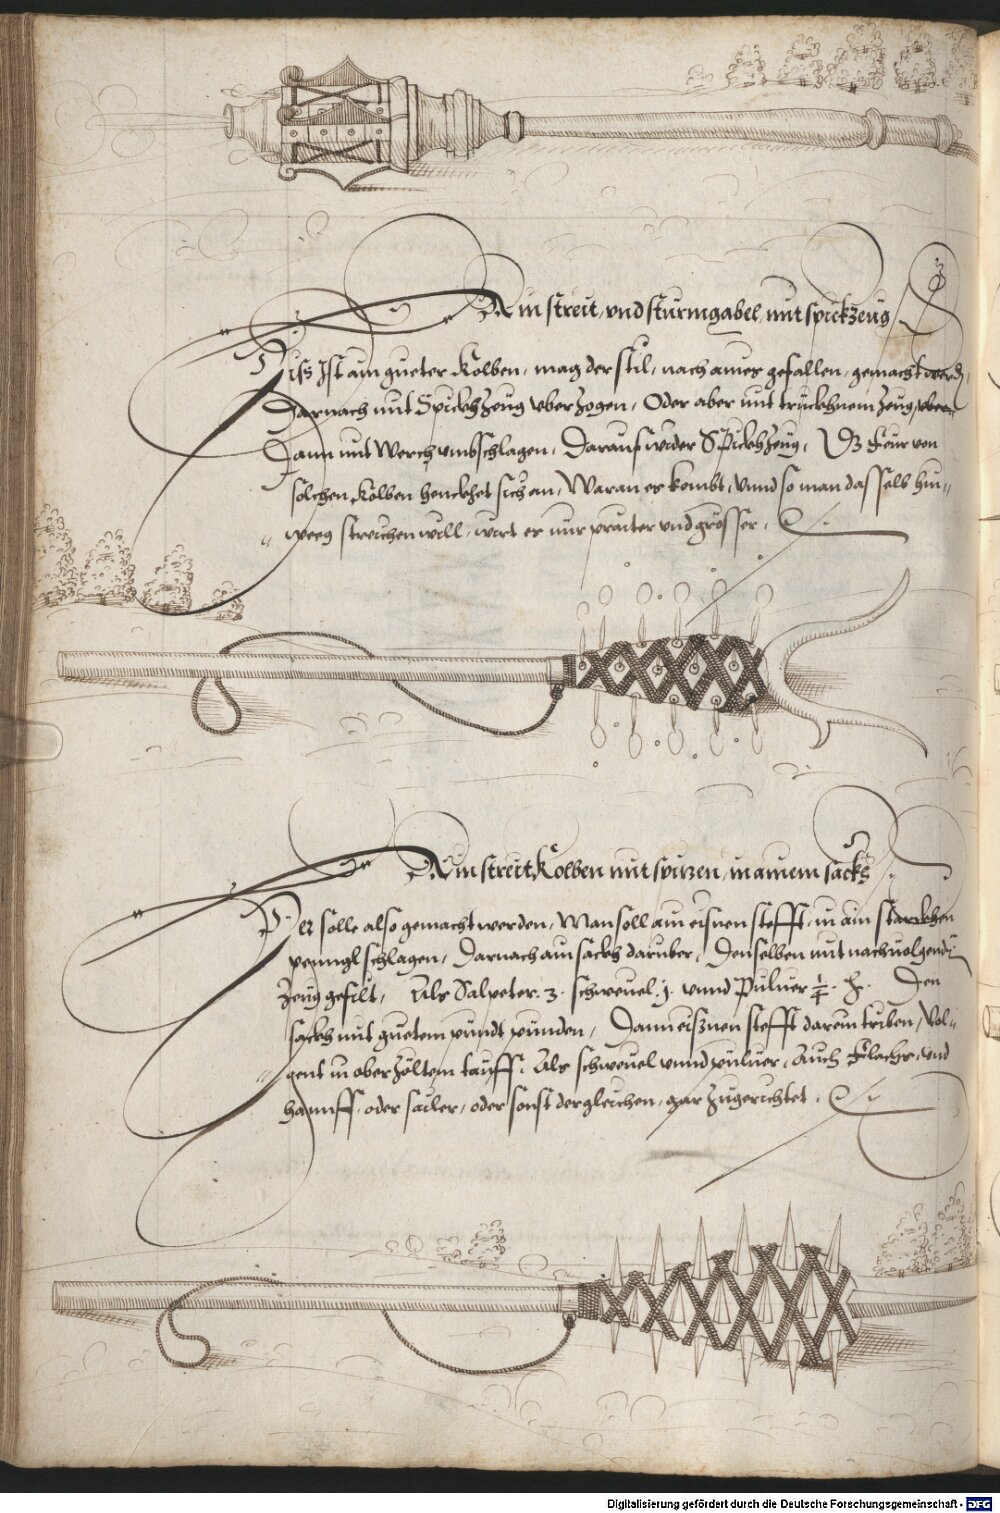 Ain streit, vnd sturmgabel, mit spickzeug
Diss Ist ain gueter Kolben, mag der stil, nach aines gefallen, gemacht werd,
Darnach mit Spickhzeug vberzogen, Oder aber mit truckhnem zeug, vber-
Dann mit Werch vmbschlagen, Darauf wider Spickhzeug, Das feur von
solchen Kolben henckhet sich an, Waran es kombt, Vnnd so man dasselb hin-
weeg streichen will, wirt es nur praiter vnd grösser.
Ain streit Kolben mit spitzen, in ainem sackh
Der solle also gemacht werden, Man soll ain eisnen stefft, in ain starckhen
penngl schlagen, Darnach ain sackh daruber, Denselben mit nachuolgend
Zeug gefilt, Als Salpeter .3. schweuel .j. vnnd Puluer 1/4. Den
sackh mit guetem pundt pünden, Dann eisznen stefft darein triben, Vol-
gent in oberzöltem tauff, Als schweuel vnnd puluer, Auch Flachs, vnd
hannff, oder sailer, oder sonst dergleichen, gar zugerichtet.
Digitalisierung gefördert durch die Deutsche Forschungsgemeinschaft - DFG